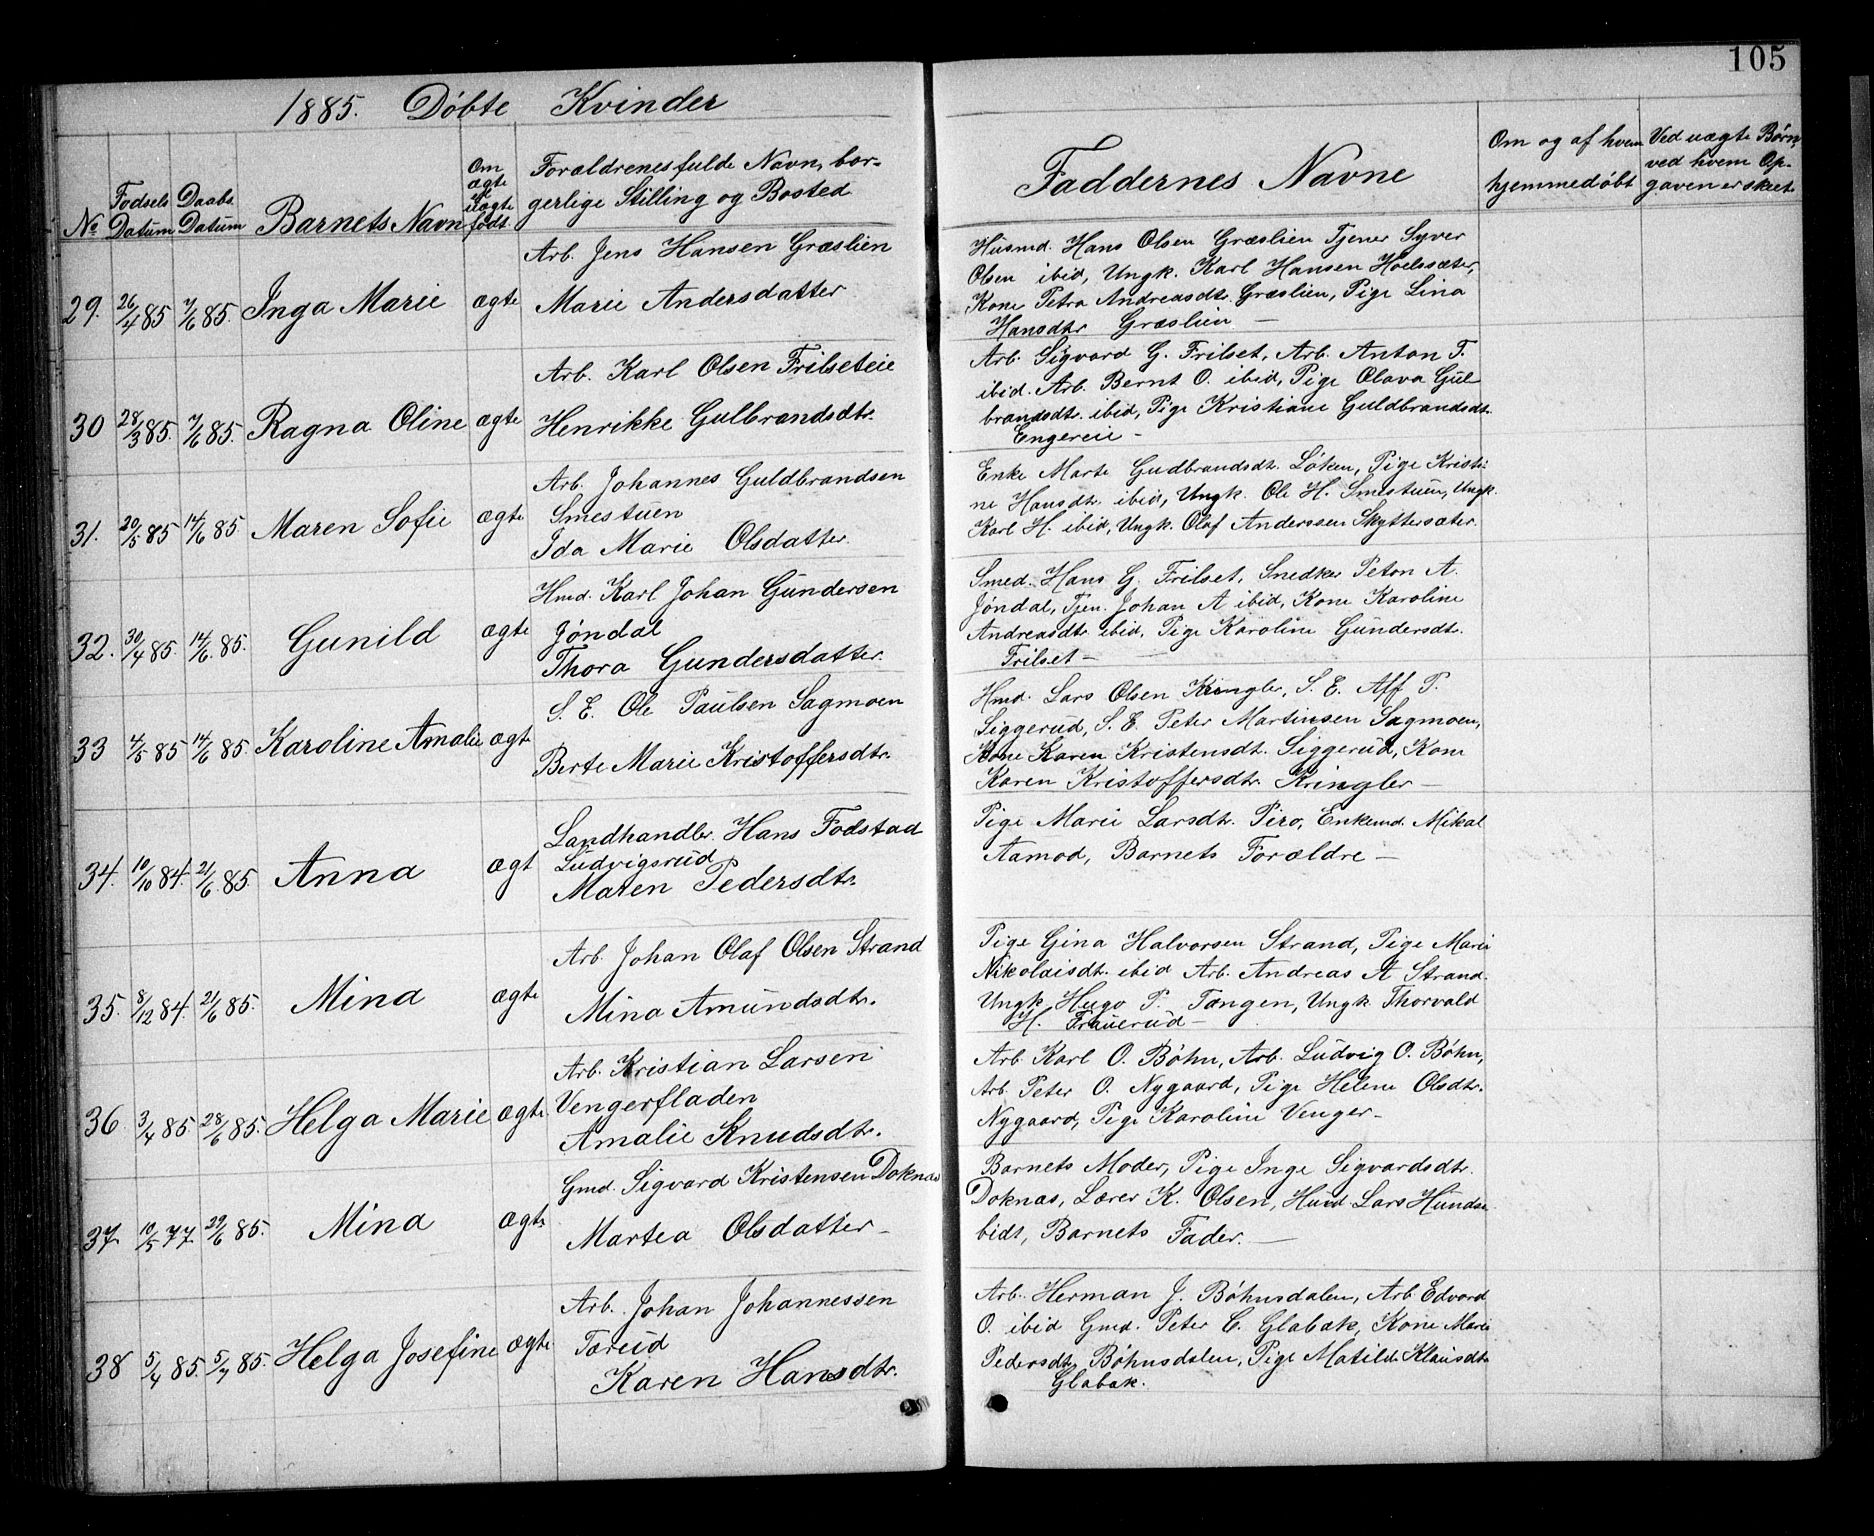 105
1885. Döbte Kvinder
No
Fodsels Datum
Daabs Datum
Barnets Navn
Om ægte l. uægte født
Forældrenes fulde Navn, bor-
gerlige Stilling og Bosted
Faddernes Navne
Om og af hvem
hjemmedöbt
Ved uægte Børn,
ved hvem Op-
gaven er skeet
29. 26/4 85 7/6 85. Inga Marie ægte
Arb. Jens Hansen Græslien
Marie Andersdatter
Husmd. Hans Olsen Græslien Tjener Syver
Olsen ibid, Ungk. Karl Hansen Hoelssæter,
Kone Petra Andreasdtr. Græslien, Pige Lina
Hansdtr Græslien —
30 28/3 85. 7/6 85. Ragna Oline ægte
Arb. Karl Olsen Frilseteie
Henrikke Gulbrandsdtr.
Arb. Sigvard G. Frilset, Arb. Anton T.
ibid. Arb. Bernt O. ibid, Pige Olava Gul
brandsdtr. ibid, Pige Kristiane Guldbrandsdt.
Engereie —
31. 20/5 85 14/6 85 Maren Sofie ægte
Arb. Johannes Guldbrandsen
Smestuen
Ida Marie Olsdatter.
Enke Marte Gudbrandsdt. Löken, Pige Kristi-
ne Hansdtr. ibid, Ungk. Ole H. Smestuen, Ungk.
Karl H. ibid, Ungk. Olaf Anderssen Skyttersæter.
32. 30/4 85. 14/6. 85. Gunild ægte
Hmd. Karl Johan Gundersen
Jöndal
Thora Gundersdatter.
Smed. Hans G. Frilset, Snedker Peton A.
Jöndal, Tjen. Johan A ibid, Kone Karoline
Andreasdtr. ibid, Pige Karoline Gundersdtr.
Frilset —
33 4/5 85 14/6 85. Karoline Amalie ægt
S. E. Ole Paulsen Sagmoen
Berte Marie Kristoffersdtr.
Hmd. Lars Olsen Kringler, S. E. Alf P.
Siggerud, S. E. Peter Martinsen Sagmoen,
Kone Karen Kristensdt. Siggerud, Kone
Karen Kristoffersdtr. Kringler —
34. 10/10 84. 21/6 85. Anna ægt
Landhandler Hans Fodstad
Ludvigsrud
Maren Pedersdtr.
Pige Marie Larsdtr. Piro, Enkemd. Mikal
Aamod, Barnets Forældre —
35. 8/12 84. 21/6 85. Mina ægte
Arb. Johan Olaf Olsen Strand
Mina Amundsdtr.
Pige Gina Halvorsen Strand, Pige Marie
Nikolaisdt. ibid Arb. Andreas A Strand.
Ungk. Hugo P. Tangen, Ungk Thorvald
H. Frauerud —
36 3/4 85 28/6 85. Helga Marie ægte
Arb. Kristian Larsen
Vengerfladen
Amalie Knudsdtr.
Arb. Karl O. Böhn, Arb. Ludvig O. Böhn,
Arb. Peter O. Nygaard, Pige Helene Olsdtr.
Nygaard, Pige Karoline Venger —
37 10/5 77. 29/6 85. Mina ægte
Gmd. Sigvard Kristensen Doknæs
Martea Olsdatter —
Barnets Moder, Pige Inge Sigvardsdtr.
Doknæs, Lærer K. Olsen, Husmd Lars Hundse
bidt, Barnets Fader. —
38 5/4 85. 5/7 85. Helga Josefine ægte
Arb. Johan Johannessen
Toreid
Karen Hansdtr.
Arb. Herman J. Böhnsdalen, Arb. Edvard
O. ibid Gmd. Peter C. Glabak, Kone Marie
Pedersdtr. Böhnsdalen, Pige Matilde Klausdtr
Glabak.